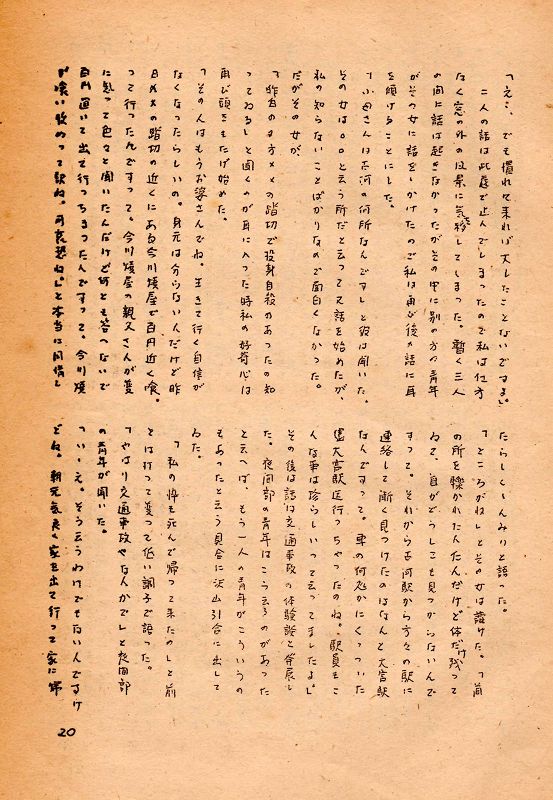 「えゝ、でも慣れて来れば大したことないですよ」
二人の話は此處で止んでしまったので私は仕方
なく窓の外の風景に気移してしまった。暫く三人
の間に話は起きなかったがその中に別の方の青年
がその女に話をしかけたので私は再び彼の話に耳
を傾けることにした。
「小母さんは古河の何所なんです」と彼は聞いた。
その女は○○と云う所だと云って又話を始めたが、
私の知らないことばかりなので面白くなかった。
だがその女が、
「昨夜のま方××の踏切で投身自殺のあったの知
ってゐる」と聞くのが耳に入った時私の好奇心は
再び頭をもたげ始めた。
「その人はもうお婆さんでね。生きて行く自信が
なくなったらしいの。身元は分らないんだけど昨
日××の踏切の近くにある今川焼屋で百円近く喰
って行ったんですって。今川焼屋の親父さんが変
に思って色々と聞いたんだけど何とも答へないで
百円置いて出て行っちまったんですって。今川焼
が喰い收めって訳ね。可哀想ね。」と本当に同情し
たらしくしんみりと語った。
「ところがね」とその女は續けた。「首
の所を轢かれたんだけど体だけ残って
ゐて、首がどうしても見つからないんで
すって。それから古河駅から方々の駅に
連絡して漸く見つけたのはなんと大宮駅
なんですって。車の何処かにくっついた
儘大宮駅迄行っちゃったのね。駅員もこ
んな事は珍らしいって云ってましたよ」
その後は話は交通事故の体験談と発展し
た。夜間部の青年はこう云うのがあった
と云へば、もう一人の青年がこういうの
もあったと云う具合に沢山引合に出して
ゐた。
「私の伜も死んで帰って来たの」と前
とは打って変って低い調子で語った。
「やはり交通事故やなんかで」と夜間部
の青年が聞いた。
「いゝえ。そう云うわけでもないんですけ
どね。朝元気良く家を出て行って家に帰
20